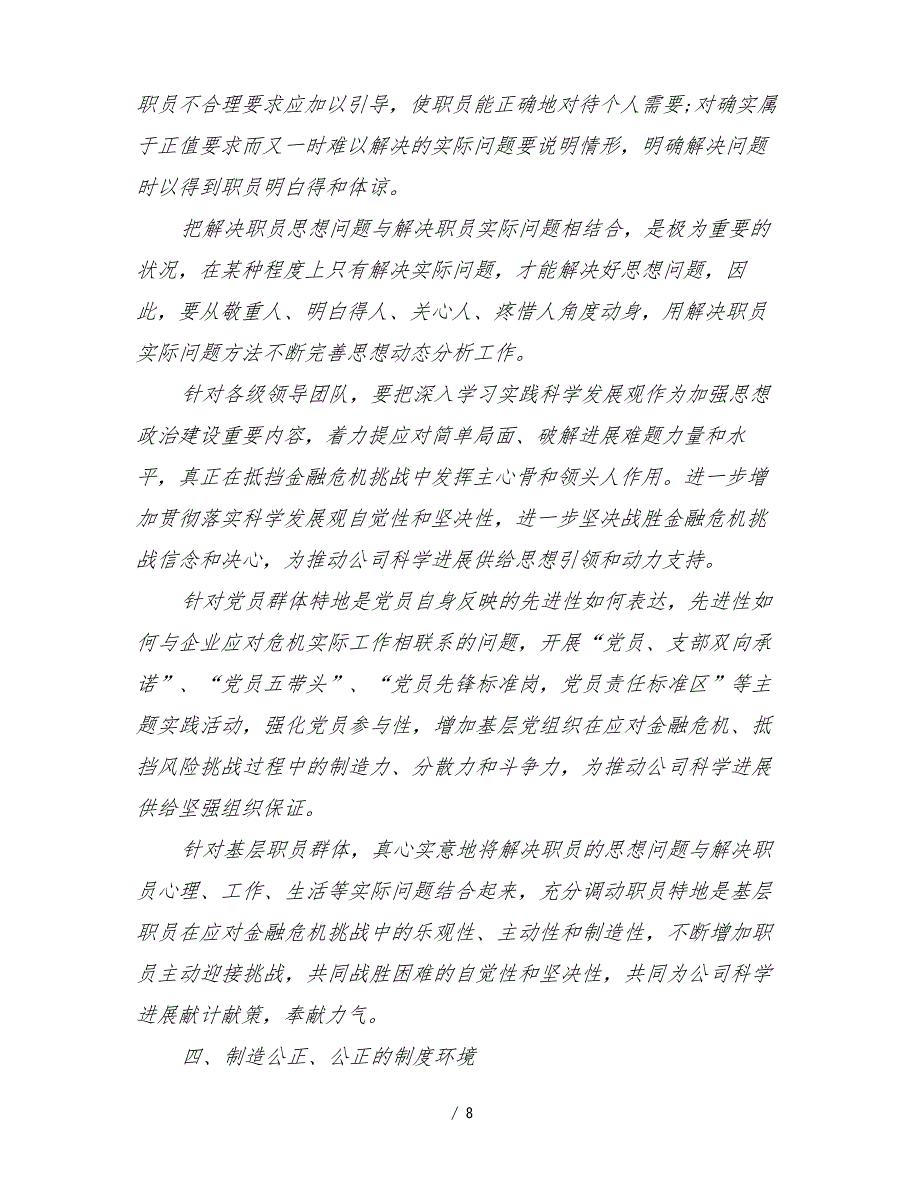 职员不合理要求应加以引导，使职员能正确地对待个人需要;对确实属
于正值要求而又一时难以解决的实际问题要说明情形，明确解决问题
时以得到职员明白得和体谅。
把解决职员思想问题与解决职员实际问题相结合，是极为重要的
状况，在某种程度上只有解决实际问题，才能解决好思想问题，因
此，要从敬重人、明白得人、关心人、疼惜人角度动身，用解决职员
实际问题方法不断完善思想动态分析工作。
针对各级领导团队，要把深入学习实践科学发展观作为加强思想
政治建设重要内容，着力提应对简单局面、破解进展难题力量和水
平，真正在抵挡金融危机挑战中发挥主心骨和领头人作用。进一步增
加贯彻落实科学发展观自觉性和坚决性，进一步坚决战胜金融危机挑
战信念和决心，为推动公司科学进展供给思想引领和动力支持。
针对党员群体特地是党员自身反映的先进性如何表达，先进性如
何与企业应对危机实际工作相联系的问题，开展“党员、支部双向承
诺”、“党员五带头”、“党员先锋标准岗，党员责任标准区”等主
题实践活动，强化党员参与性，增加基层党组织在应对金融危机、抵
挡风险挑战过程中的制造力、分散力和斗争力，为推动公司科学进展
供给坚强组织保证。
针对基层职员群体，真心实意地将解决职员的思想问题与解决职
员心理、工作、生活等实际问题结合起来，充分调动职员特地是基层
职员在应对金融危机挑战中的乐观性、主动性和制造性，不断增加职
员主动迎接挑战，共同战胜困难的自觉性和坚决性，共同为公司科学
进展献计献策，奉献力气。
四、制造公正、公正的制度环境
/ 8